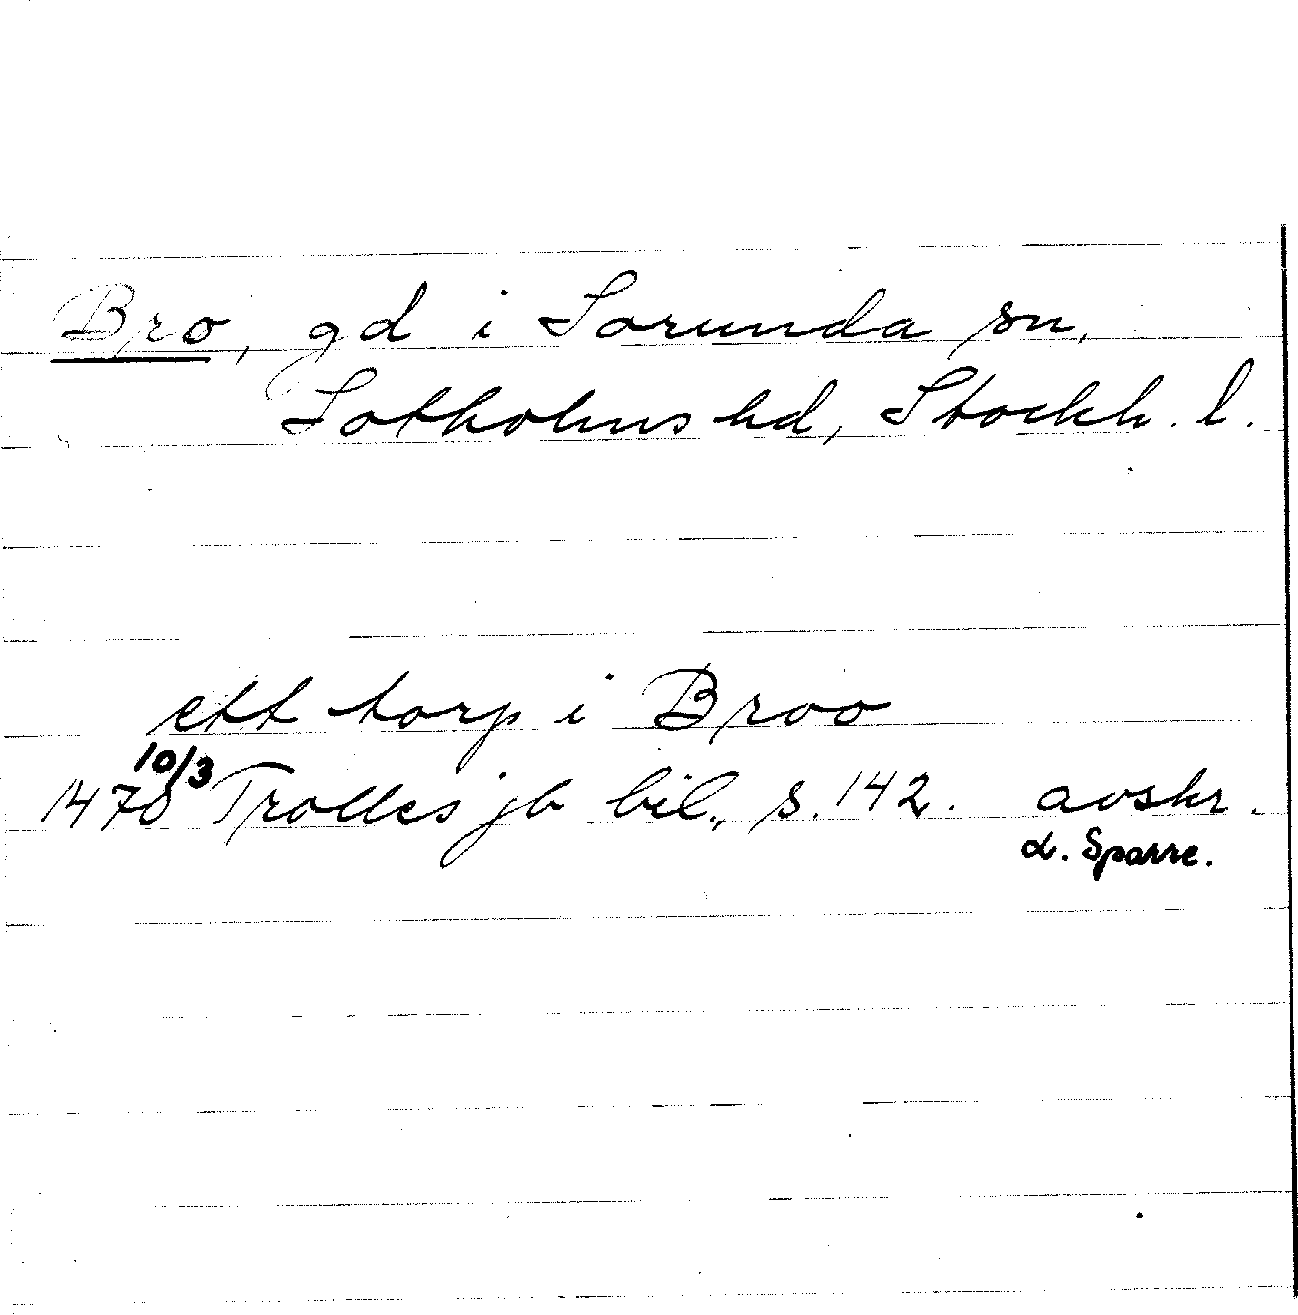 Bro, gd i Sorunda sn,
Sotholms hd, Stockh. l.
ett torp i Broo
10/3
1470 Trolles jb bil., s. 142. avskr.
d. Sparre.